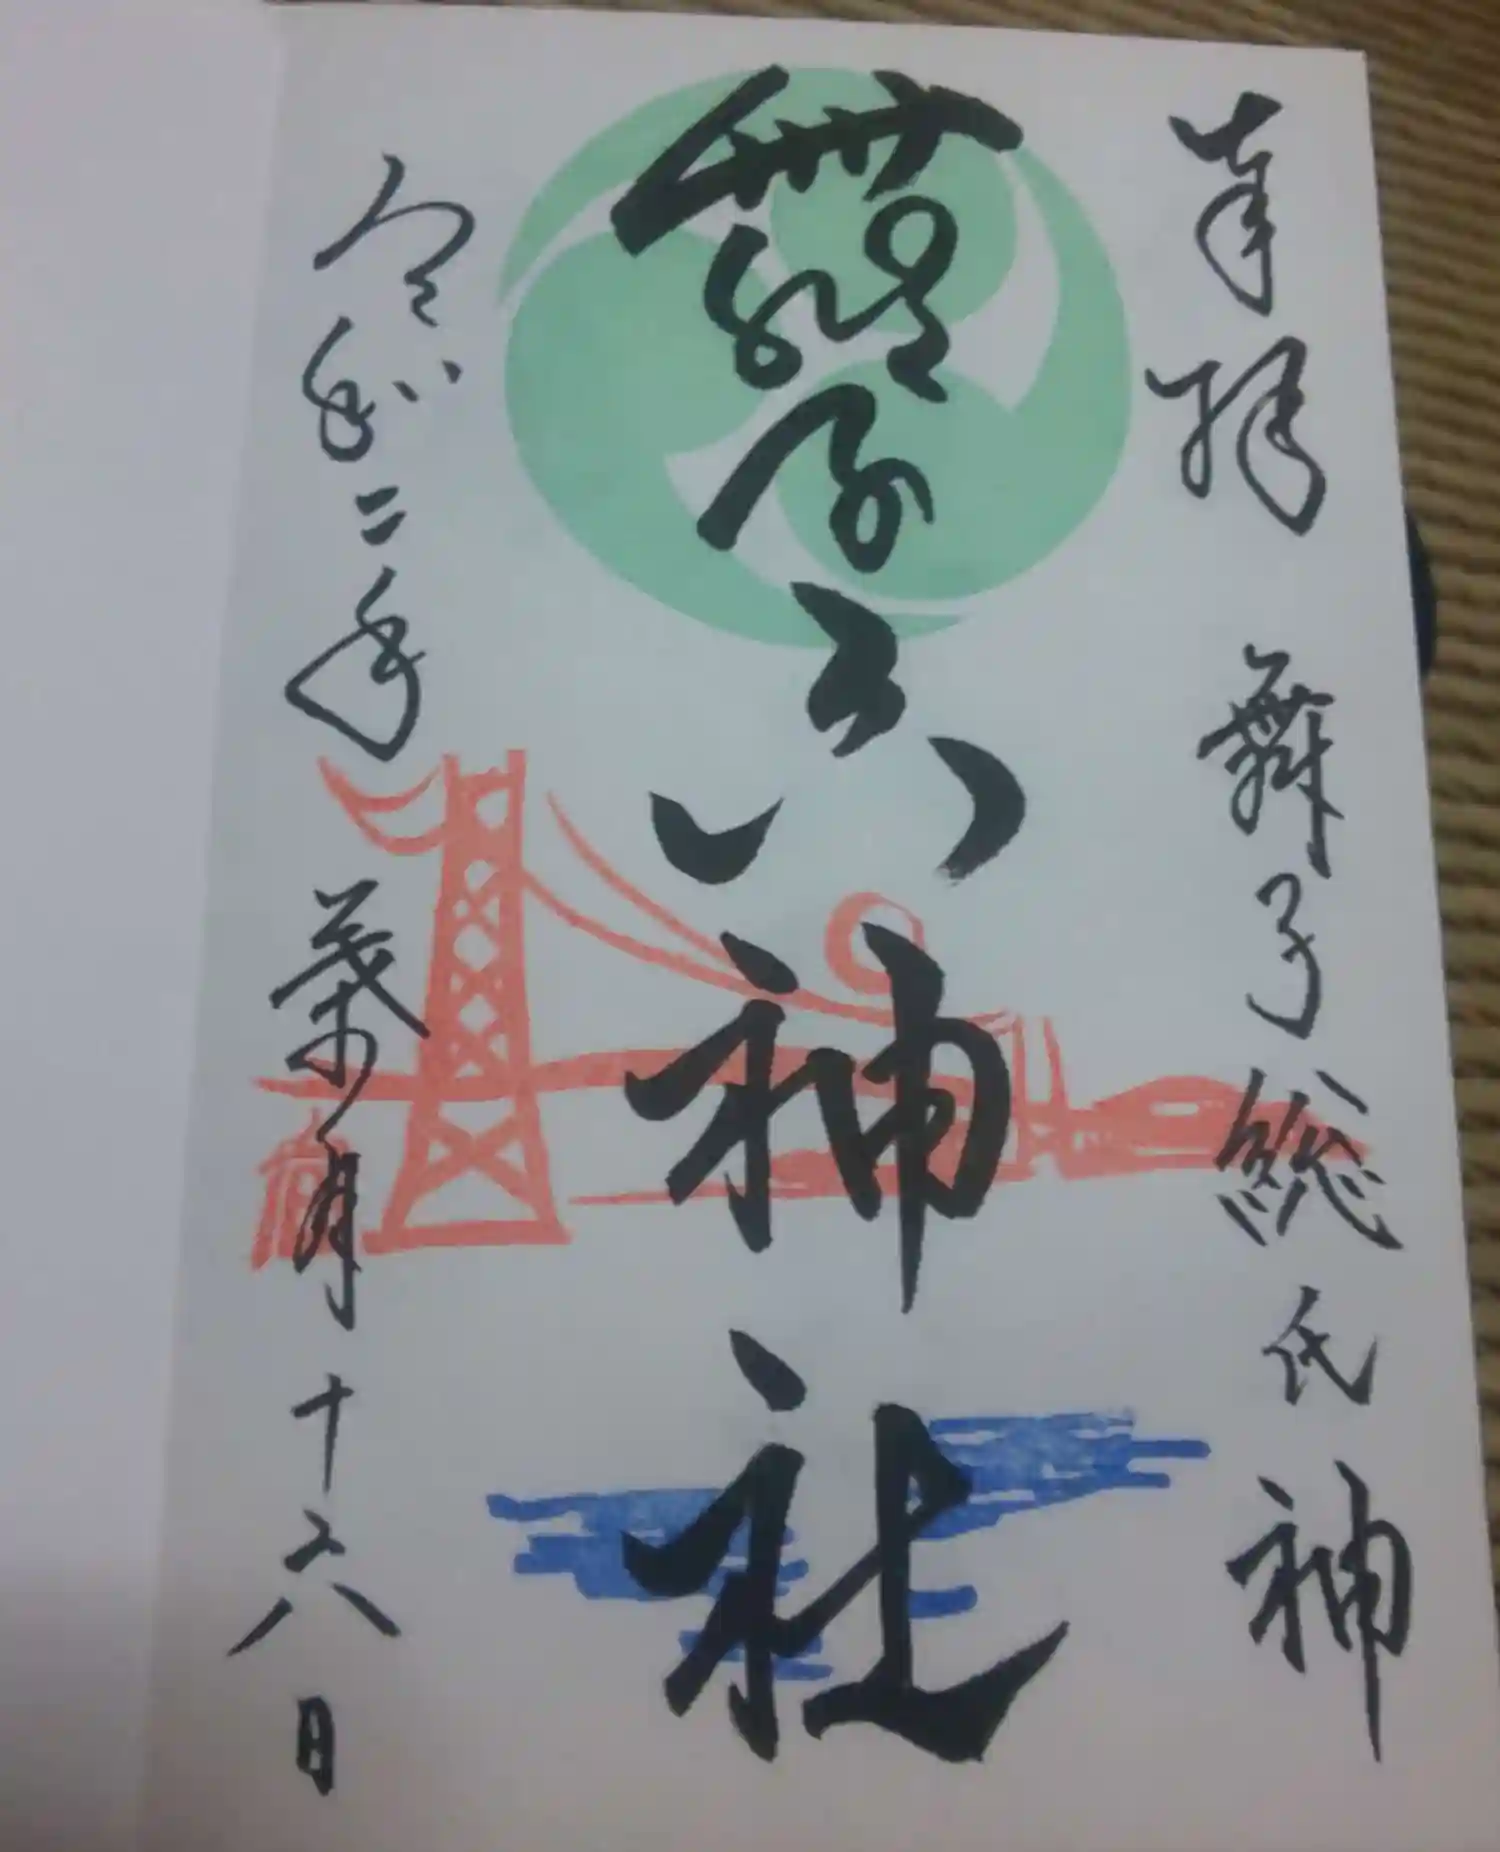 奉拝 舞子総氏神
舞子六神社
令和二年 葉月 十六日